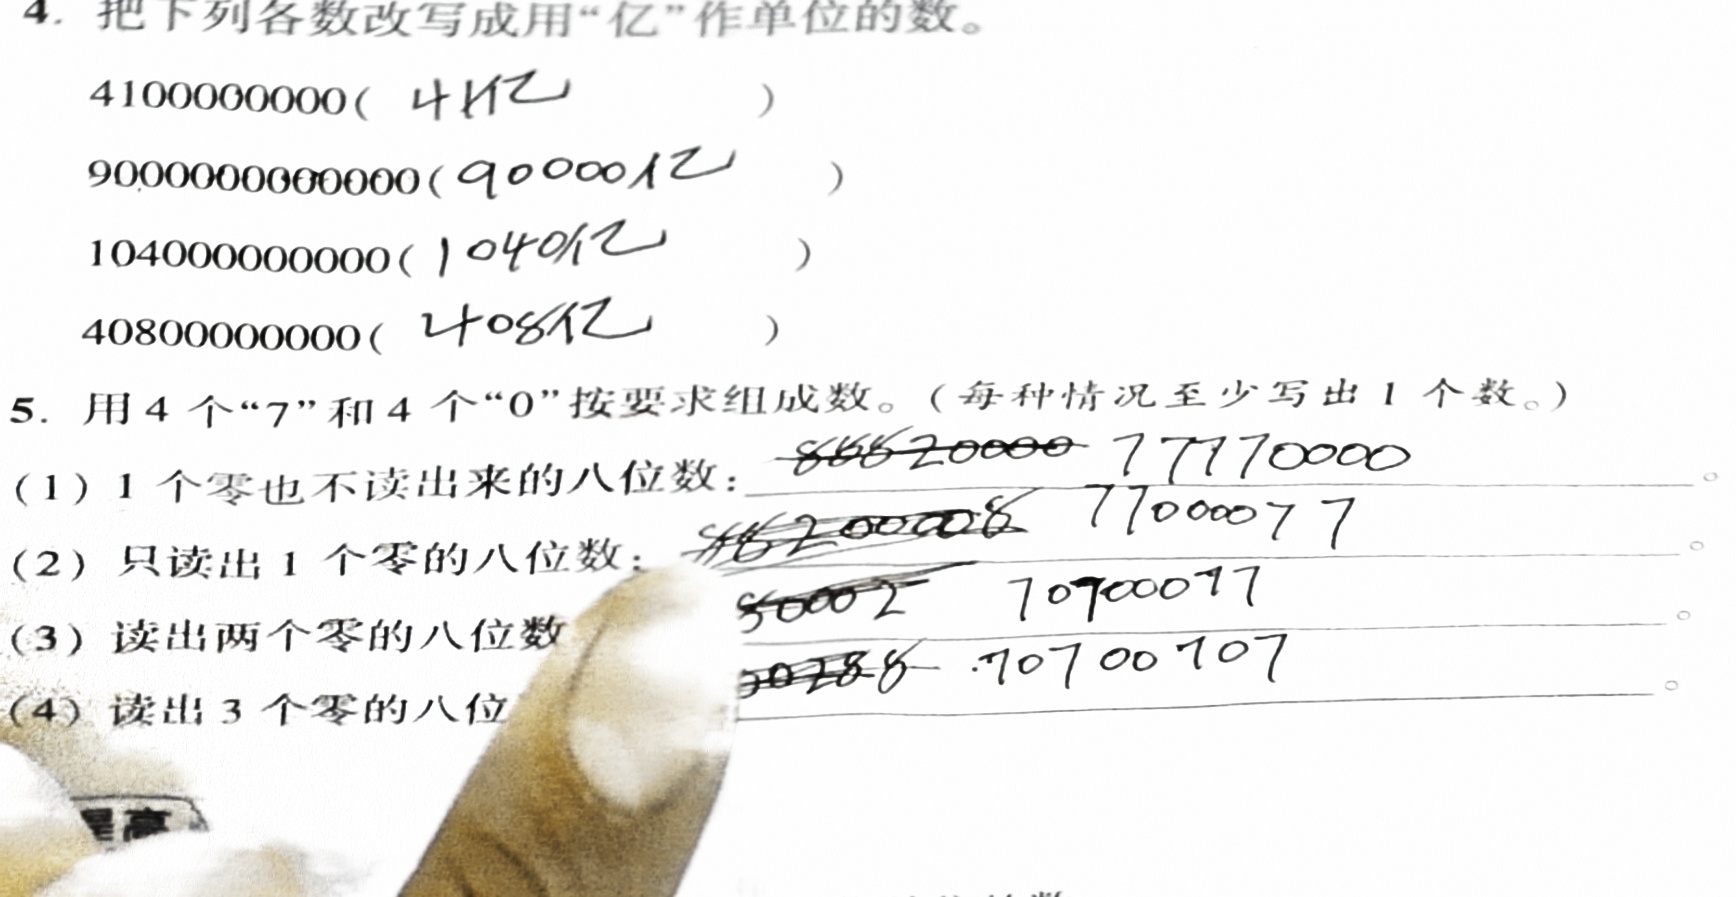 4. 把下列各数改写成用“亿”作单位的数。
4100000000( 41亿 )
9000000000000( 90000亿 )
104000000000( 1040亿 )
40800000000( 408亿 )
5. 用4个“7”和4个“0”按要求组成数。(每种情况至少写出1个数。)
(1) 1个零也不读出来的八位数: 77770000 。
(2) 只读出1个零的八位数: 77000077 。
(3) 读出两个零的八位数 70700077 。
(4) 读出3个零的八位 70700707 。